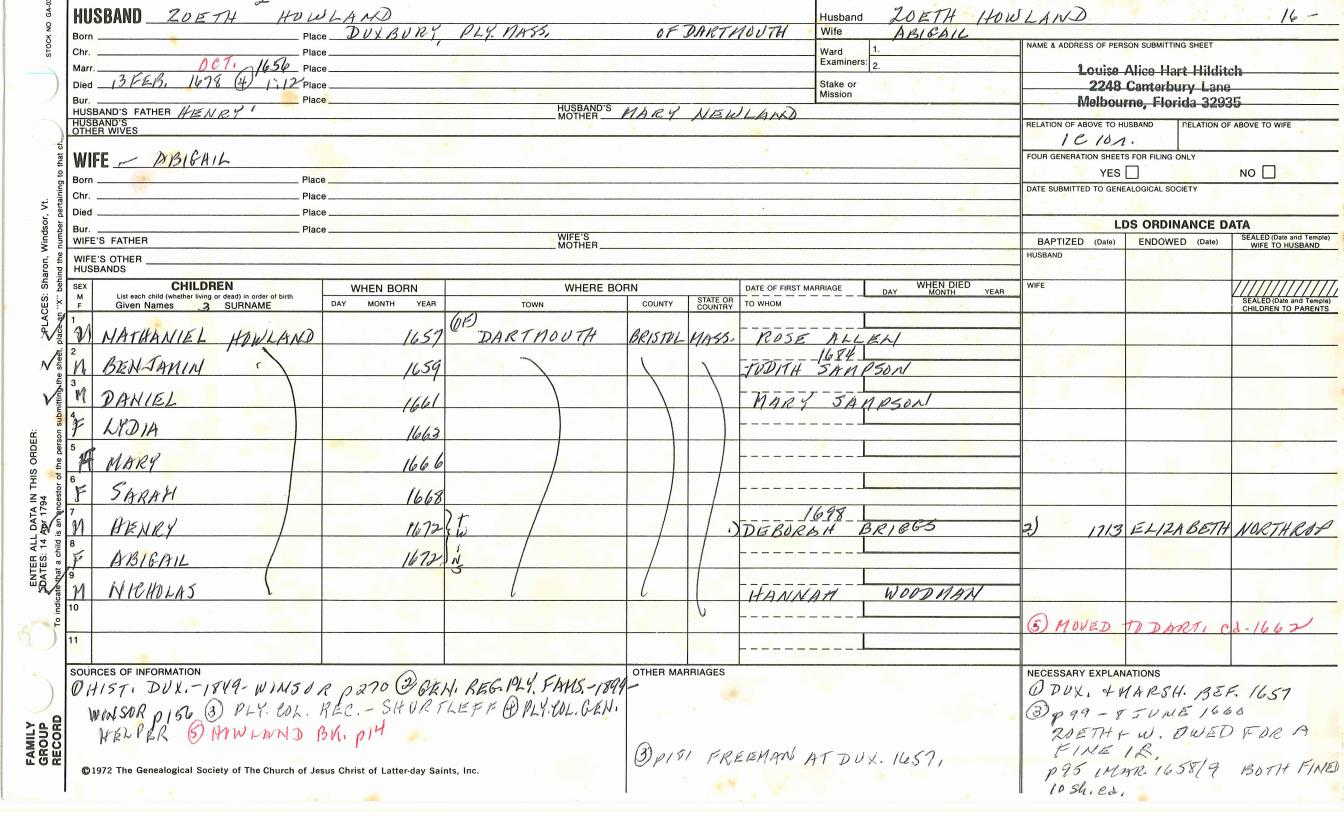 HUSBAND ZOETH HOWLAND
Born Place DUXBURY, PLY. MASS. OF DARTMOUTH
Chr. Place
Marr. OCT. 1656 Place
Died 13 FEB. 1678 ④ 1:12 Place
Bur. Place
HUSBAND'S FATHER HENRY' HUSBAND'S MOTHER MARY NEWLAND
HUSBAND'S OTHER WIVES
Husband ZOETH HOWLAND 16 -
Wife ABIGAIL
Ward Examiners: 1. 2.
Stake or Mission
NAME & ADDRESS OF PERSON SUBMITTING SHEET
Louise Alice Hart Hilditch
2248 Canterbury Lane
Melbourne, Florida 32935
RELATION OF ABOVE TO HUSBAND RELATION OF ABOVE TO WIFE
1C10r.
FOUR GENERATION SHEETS FOR FILING ONLY
YES NO
DATE SUBMITTED TO GENEALOGICAL SOCIETY
WIFE ABIGAIL
Born Place
Chr. Place
Died Place
Bur. Place
WIFE'S FATHER WIFE'S MOTHER
WIFE'S OTHER HUSBANDS
LDS ORDINANCE DATA
BAPTIZED (Date) ENDOWED (Date) SEALED (Date and Temple) WIFE TO HUSBAND
HUSBAND
WIFE
SEALED (Date and Temple) CHILDREN TO PARENTS
SEX M F CHILDREN WHEN BORN WHERE BORN DATE OF FIRST MARRIAGE WHEN DIED
List each child (whether living or dead) in order of birth
Given Names SURNAME DAY MONTH YEAR TOWN COUNTY STATE OR COUNTRY TO WHOM DAY MONTH YEAR
1 M NATHANIEL HOWLAND 1657 (OF) DARTMOUTH BRISTOL MASS. ROSE ALLEN
2 M BENJAMIN 1659 1684 JUDITH SAMPSON
3 M DANIEL 1661 MARY SAMPSON
4 F LYDIA 1663
5 F MARY 1666
6 F SARAH 1668
7 M HENRY 1672 TWINS 1698 1) DEBORAH BRIGGS 2) 1713 ELIZABETH NORTHROP
8 F ABIGAIL 1672
9 M NICHOLAS HANNAH WOODMAN
10
⑤ MOVED TO DART. ca. 1662
11
SOURCES OF INFORMATION
① HIST. DUX.-1849- WINSOR p270 ② GEN. REG. PLY. FAMS.-1899-
WINSOR p156 ③ PLY. COL. REC. - SHURTLEFF ④ PLY. COL. GEN.
HELPER ⑤ HOWLAND BK. p14
OTHER MARRIAGES
③ p181 FREEMAN AT DUX. 1657,
NECESSARY EXPLANATIONS
① DUX. & MARSH. BEF. 1657
③ p99 - 8 JUNE 1660
ZOETH & W. OWED FOR A
FINE 1R.
p95 1 MAR. 1658/9 BOTH FINED
10 sh. ea.
©1972 The Genealogical Society of The Church of Jesus Christ of Latter-day Saints, Inc.
FAMILY GROUP RECORD
ENTER ALL DATA IN THIS ORDER:
DATES: 14 Apr 1794
PLACES: Sharon, Windsor, Vt.
To indicate that a child is an ancestor of the person submitting the sheet, place an "X" behind the number pertaining to that
STOCK NO